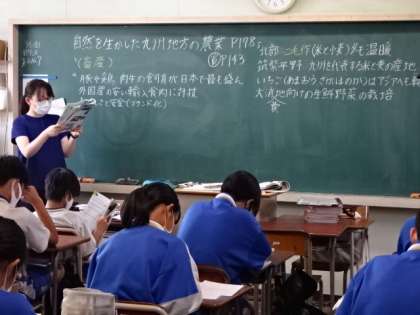 自然を生かした九州地方の農業 P198
P143
(畜産)
・豚や乳牛、肉牛の飼育が日本で最も盛ん
外国産の安い輸入食肉に対抗
安全(ブランド化)
北部 二毛作(米と麦)冬も温暖
筑紫平野 九州を代表する米と麦の産地
いちご(あまおう、さがほのか)はアジアへも輸
大消費地向けの生鮮野菜の栽培